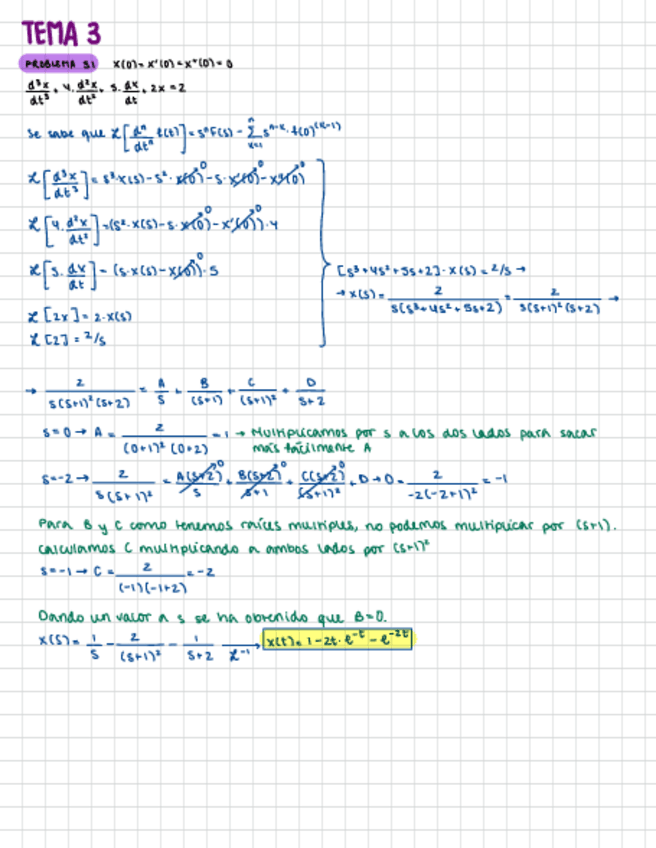 TEMA 3
PROBLEMA 31 x(0) = x'(0) = x''(0) = 0
d³x/dt³ + 4·d²x/dt² + 5·dx/dt + 2x = 2
Se sabe que ℒ[dⁿ/dtⁿ f(t)] = sⁿF(s) - Σ(k=1, n) sⁿ⁻ᵏ · f(0)⁽ᵏ⁻¹⁾
ℒ[d³x/dt³] = s³·x(s) - s²·x(0)⁰ - s·x'(0)⁰ - x''(0)⁰
ℒ[4·d²x/dt²] = (s²·x(s) - s·x(0)⁰ - x'(0)⁰)·4
ℒ[5·dx/dt] = (s·x(s) - x(0)⁰)·5
ℒ[2x] = 2·x(s)
ℒ[2] = 2/s
[s³+4s²+5s+2]·x(s) = 2/s →
→ x(s) = 2/(s(s³+4s²+5s+2)) = 2/(s(s+1)²(s+2)) →
→ 2/(s(s+1)²(s+2)) = A/s + B/(s+1) + C/(s+1)² + D/(s+2)
s=0 → A = 2/((0+1)²(0+2)) = 1 → Multiplicamos por s a los dos lados para sacar
más fácilmente A
s=-2 → 2/(s(s+1)²) = A(s+2)⁰/s + B(s+2)⁰/(s+1) + C(s+2)⁰/(s+1)² + D → D = 2/(-2(-2+1)²) = -1
Para B y C como tenemos raíces multiples, no podemos multiplicar por (s+1).
Calculamos C multiplicando a ambos lados por (s+1)²
s=-1 → C = 2/((-1)(-1+2)) = -2
Dando un valor a s se ha obtenido que B=0.
x(s) = 1/s - 2/(s+1)² - 1/(s+2) ℒ⁻¹→ x(t) = 1-2t·e⁻ᵗ - e⁻²ᵗ